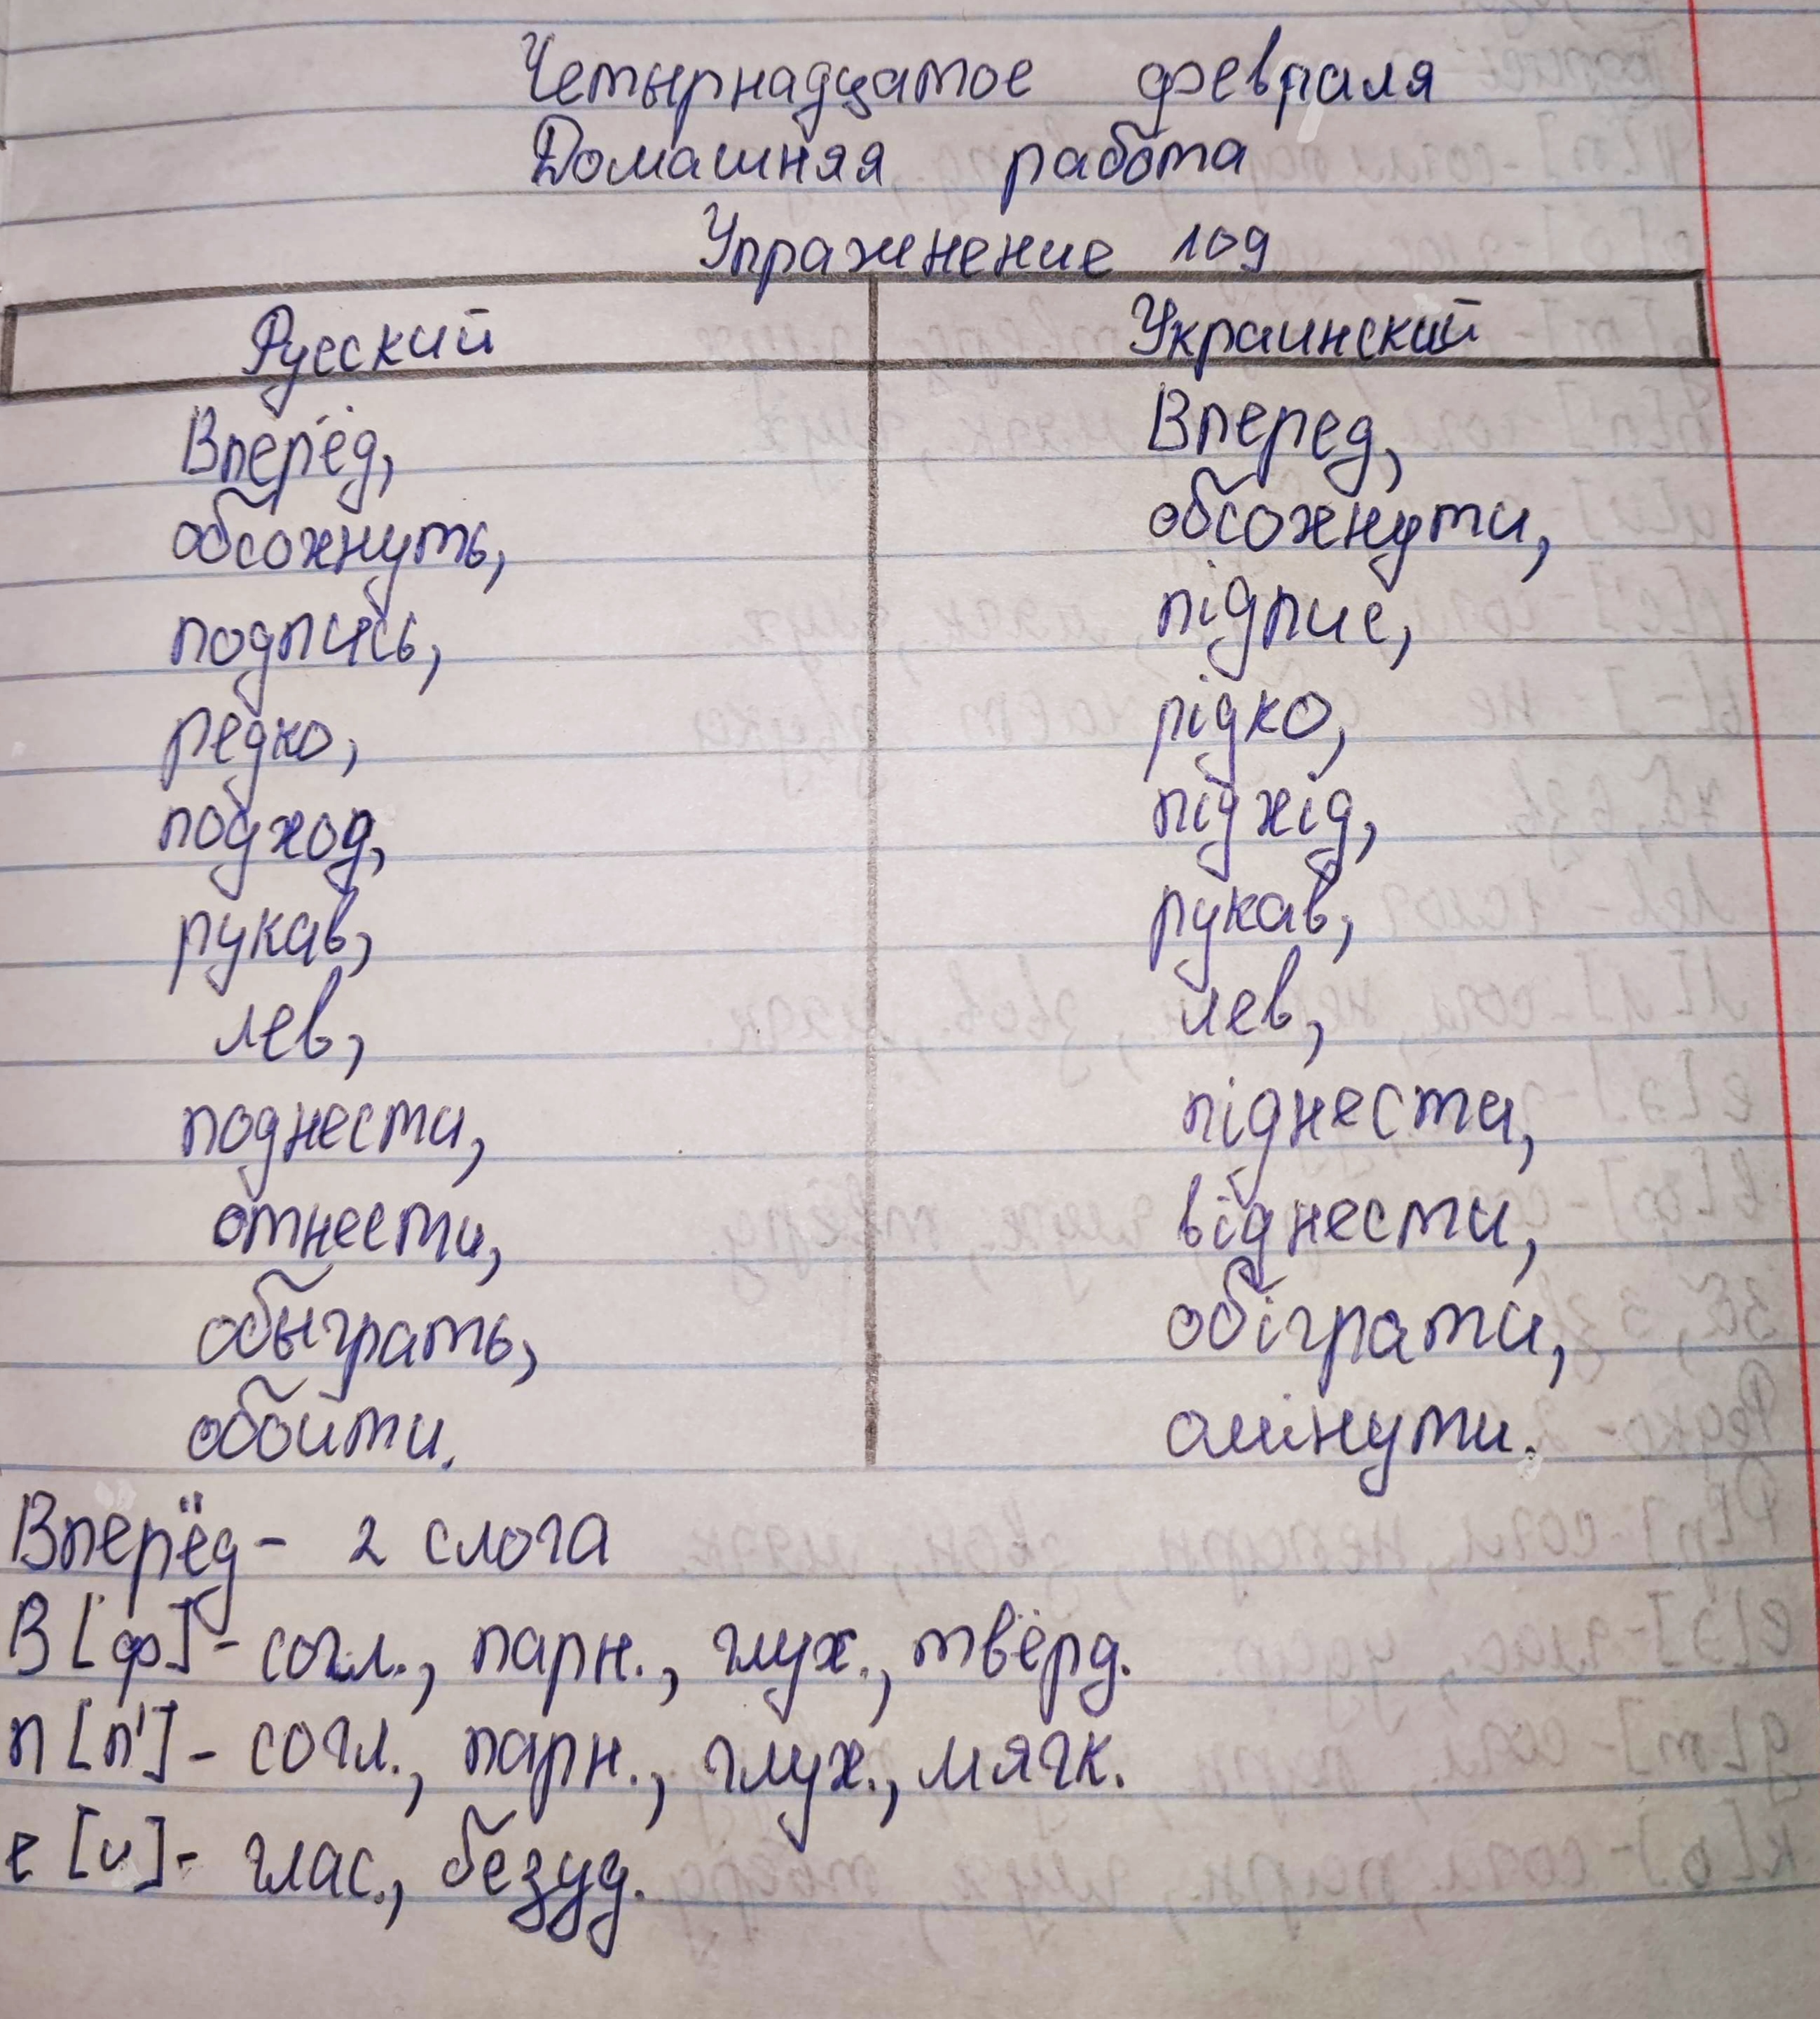 Четырнадцатое февраля
Домашняя работа
Упражнение 109
Русский Украинский
Вперёд, Вперед,
обсохнуть, обсохнути,
подпись, підпис,
редко, рідко,
подход, підхід,
рукав, рукав,
лев, лев,
поднести, піднести,
отнести, віднести,
обыграть, обіграти,
обойти. омінути.
Вперёд - 2 слога
В [ф] - согл., парн., глух., твёрд.
п [п'] - согл., парн., глух., мягк.
е [и] - глас., безуд.